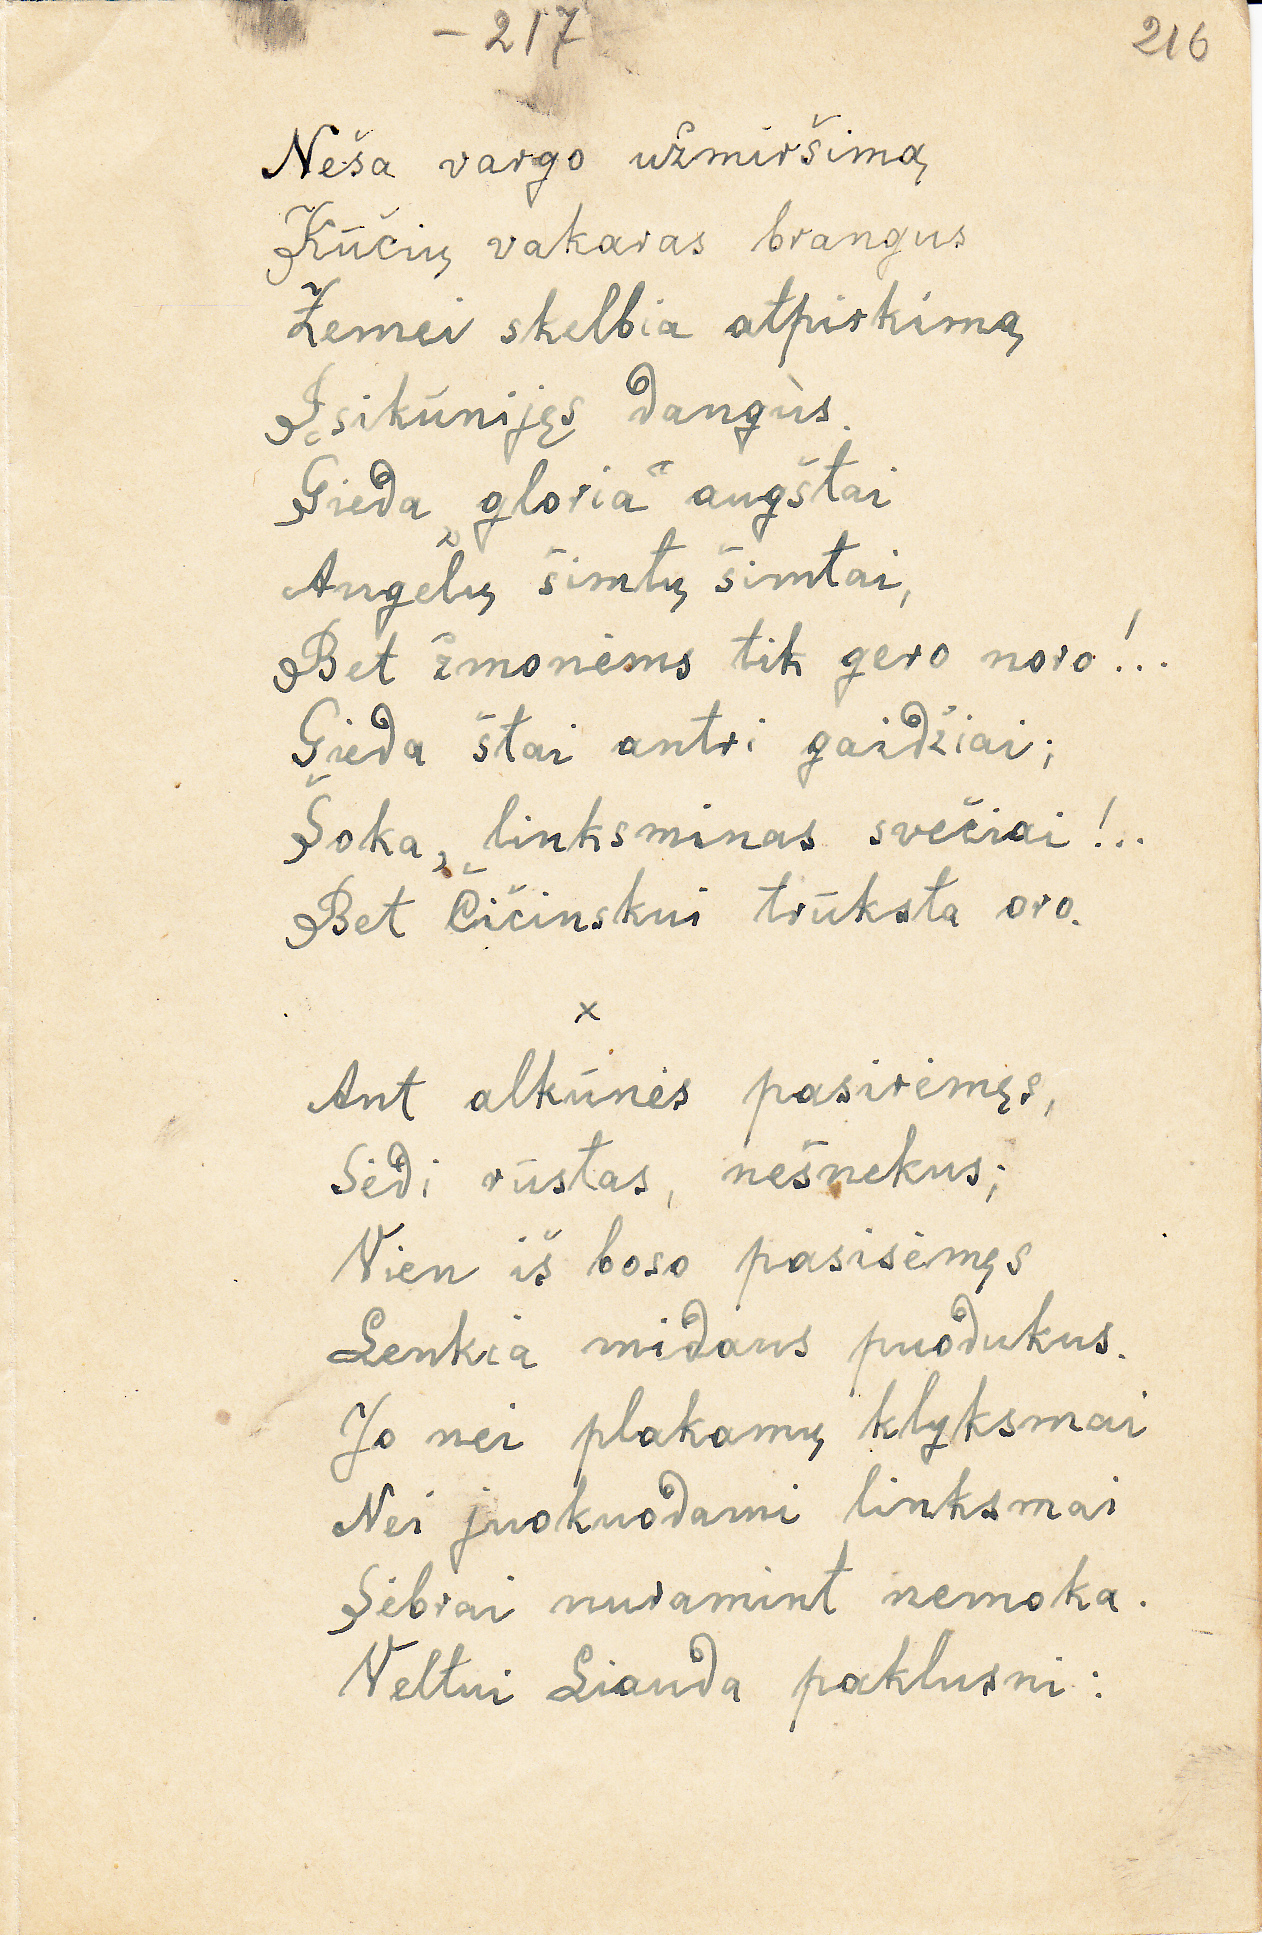 - 217
216
Neša vargo užmiršimą
Kūčių vakaras brangus
Žemei skelbia atpirkimą
Įsikūnijęs dangùs.
Gieda „gloria“ augštai
Angelų šimtų šimtai,
Bet žmonėms tik gero noro!..
Gieda štai antri gaidžiai;
Šoka, linksminas svečiai!..
Bet Čičinskui trūksta oro.
x
Ant alkūnės pasirėmęs,
Sėdi rūstas, nešnekus;
Vien iš boso pasisėmęs
Lenkia midaus puodukus.
Jo nei plakamų klyksmai
Nei juokuodami linksmai
Sėbrai nuramint nemoka.
Veltui Liauda paklusni: